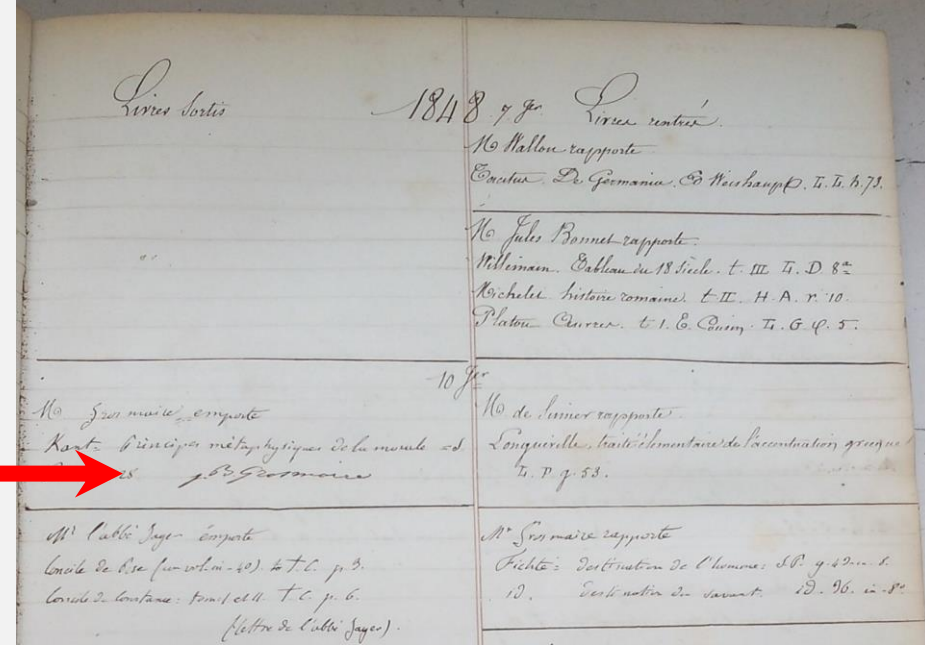 Livres sortis
1848
7 Jer
Livres rentrés.
Mr Wallon rapporte
Tacitus. De Germania. Ed Weishaupt. L. L. h. 73.
Mr Jules Bonnet rapporte.
Villemain. Tableau du 18 Siècle. t. III L. D. 8º
Michelet histoire romaine. t II. H. A. r. 10.
Platon Œuvres. t 1. E. Cousin. L. G. φ. 5.
10 Jer
Mr Grosmaire emporte
Kant = Principes métaphysiques de la morale = d.
28. J. B. Grosmaire
Mr de Sinner rapporte.
Longueville, traité élémentaire de l'accentuation grecque
L. P. q. 53.
Mr l'abbé Jager emporte
Concile de Pise (un vol. in-4º). to T. C. p. 3.
Concile de Constance: tom. I et II. T. C. p. 6.
(lettre de l'abbé Jager).
Mr Grosmaire rapporte
Fichte = destination de l'homme: S P. q. 42. in-8.
id. destination du savant. id. 96. in-8º